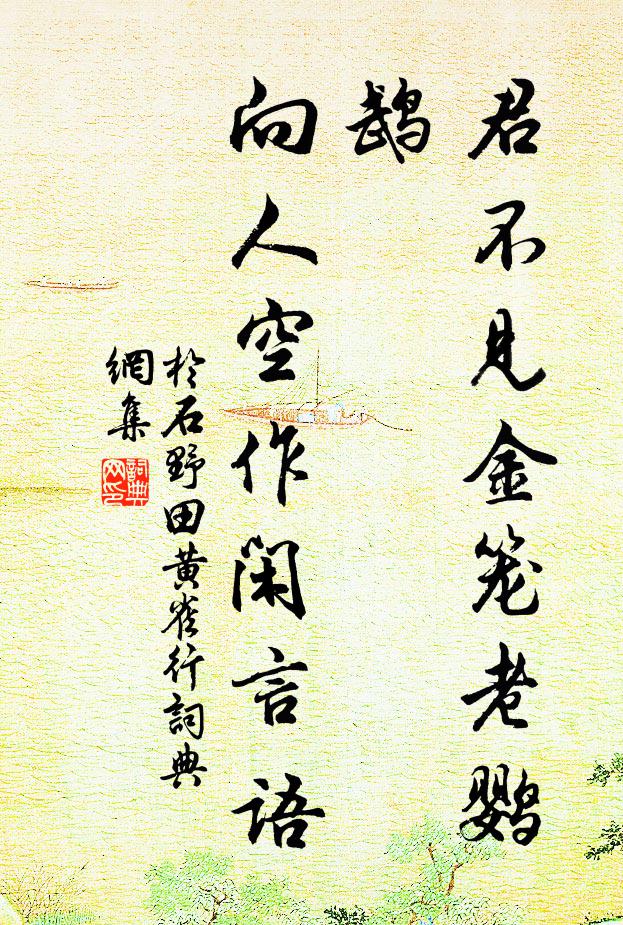 君不见金笼老鹦
鹉
向人空作闲言语
於石野田黄雀行詞典
網集
詞典
网印